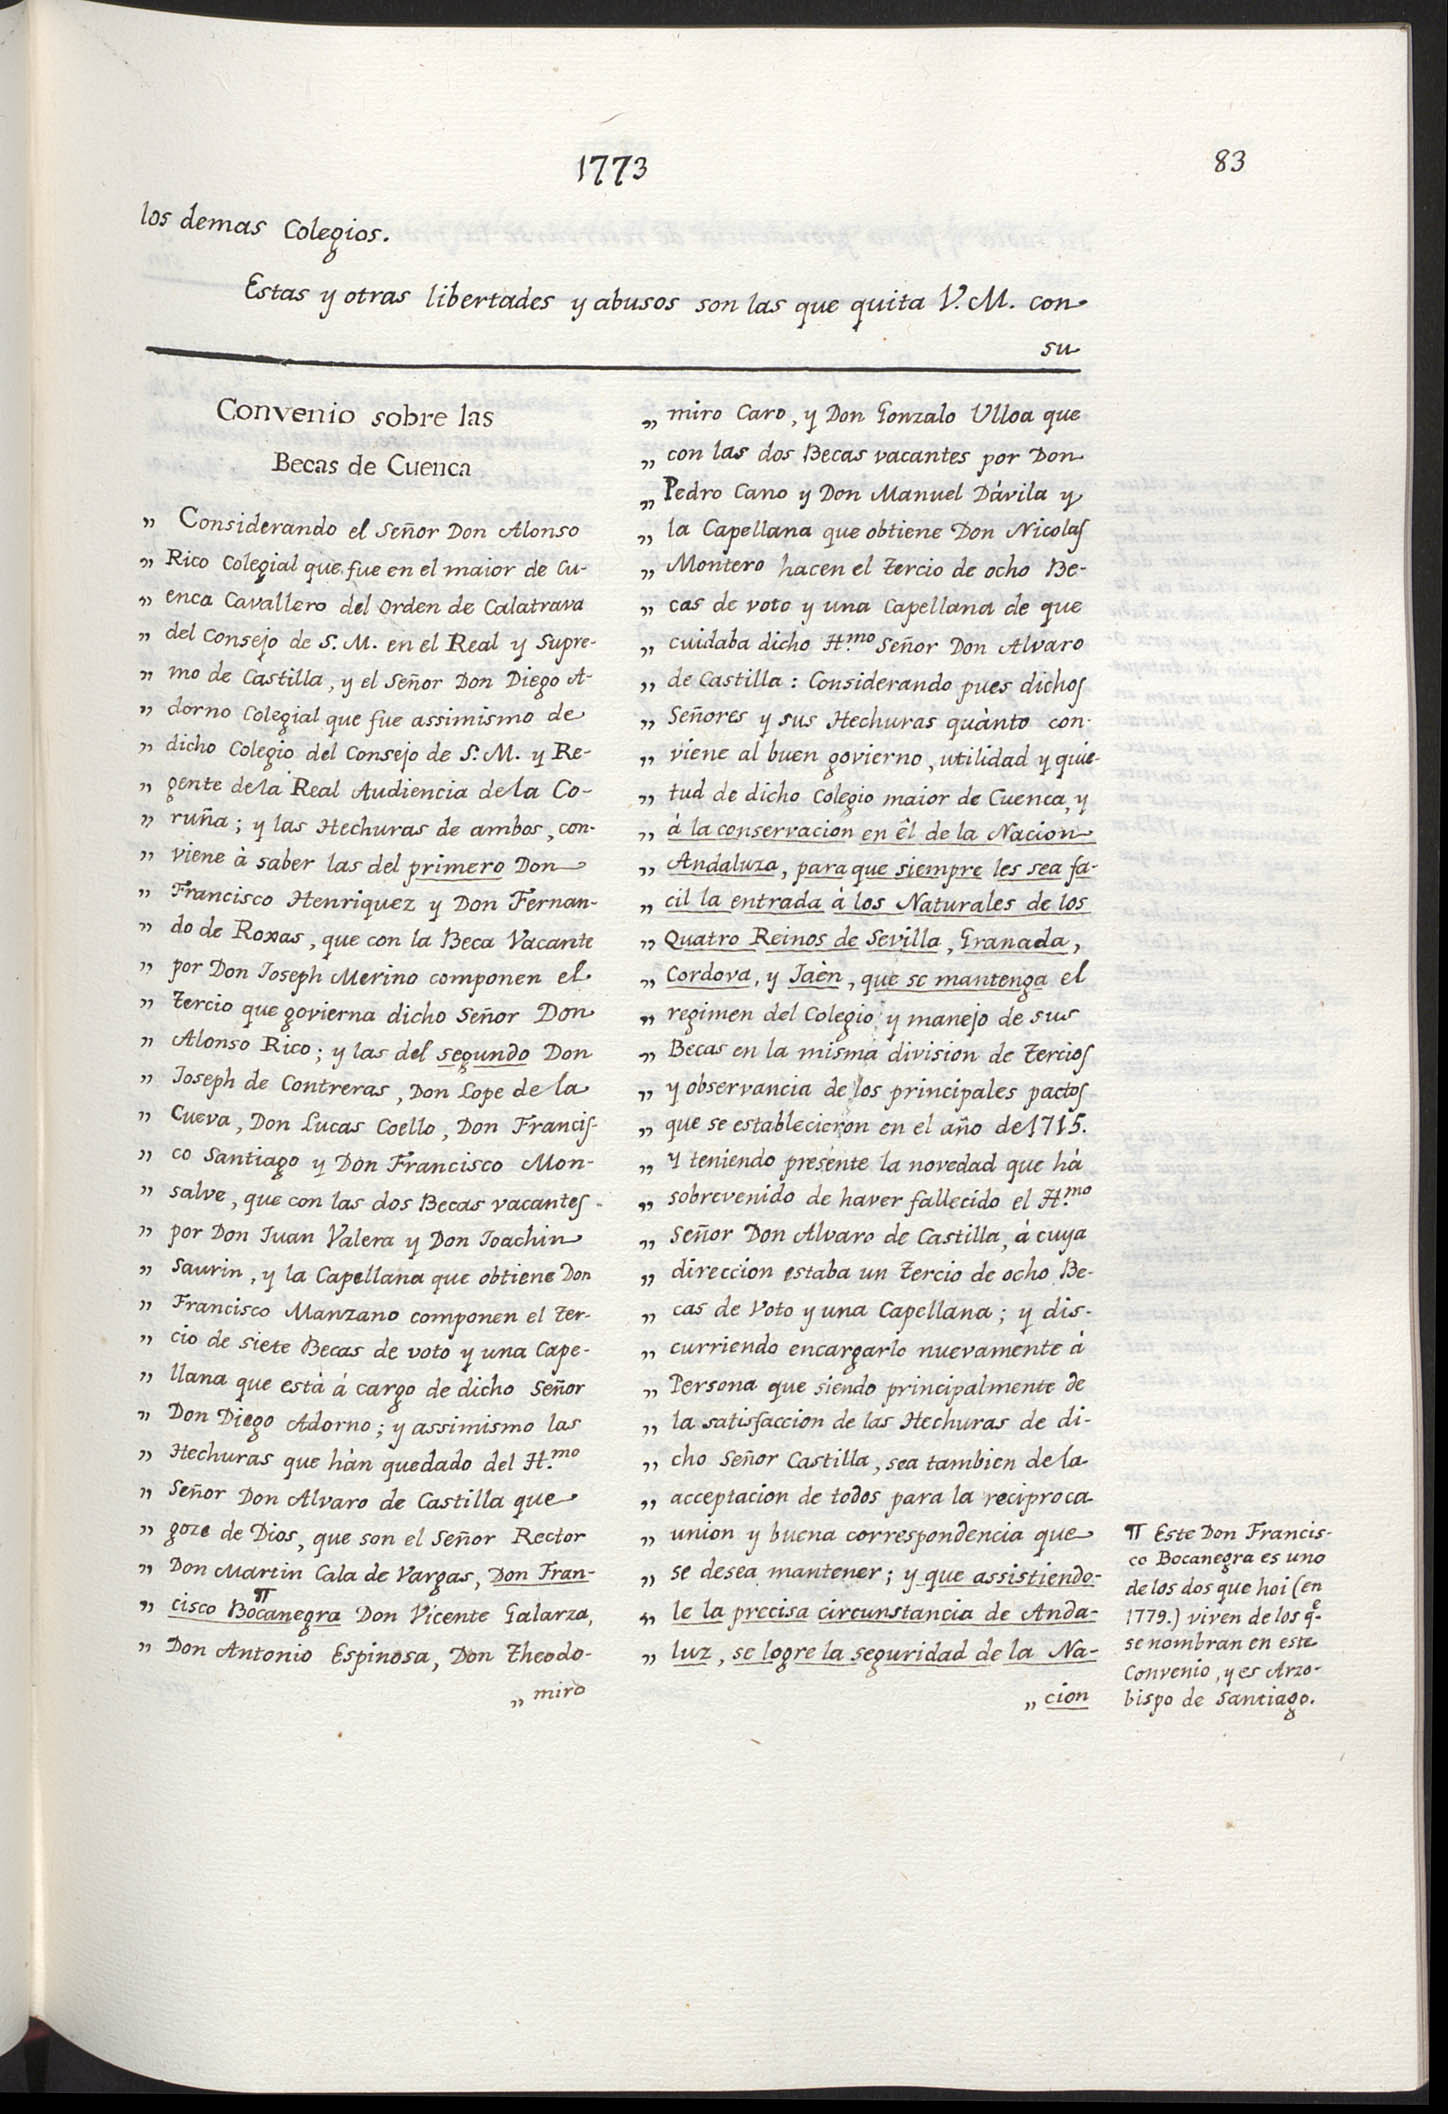 1773
83
los demas Colegios.
Estas y otras libertades y abusos son las que quita V. M. con
su
Convenio sobre las
Becas de Cuenca
„ Considerando el Señor Don Alonso
„ Rico Colegial que fue en el maior de Cu-
„ enca Cavallero del Orden de Calatrava
„ del Consejo de S. M. en el Real y Supre-
„ mo de Castilla, y el Señor Don Diego A-
„ dorno Colegial que fue assimismo de
„ dicho Colegio del Consejo de S. M. y Re-
„ gente de la Real Audiencia de la Co-
„ ruña; y las Hechuras de ambos, con-
„ viene à saber las del primero Don
„ Francisco Henriquez y Don Fernan-
„ do de Roxas, que con la Beca Vacante
„ por Don Joseph Merino componen el
„ Tercio que govierna dicho Señor Don
„ Alonso Rico; y las del segundo Don
„ Joseph de Contreras, Don Lope de la
„ Cueva, Don Lucas Coello, Don Francis-
„ co Santiago y Don Francisco Mon-
„ salve, que con las dos Becas vacantes
„ por Don Juan Valera y Don Joachin
„ Saurin, y la Capellana que obtiene Don
„ Francisco Manzano componen el Ter-
„ cio de siete Becas de voto y una Cape-
„ llana que està á cargo de dicho Señor
„ Don Diego Adorno; y assimismo las
„ Hechuras que hàn quedado del Hmo
„ Señor Don Alvaro de Castilla que
„ goze de Dios, que son el Señor Rector
„ Don Martin Cala de Vargas, Don Fran-
„ cisco Bocanegra ¶ Don Vicente Galarza,
„ Don Antonio Espinosa, Don Theodo-
„ miro
„ miro Caro, y Don Gonzalo Ulloa que
„ con las dos Becas vacantes por Don
„ Pedro Cano y Don Manuel Dávila y
„ la Capellana que obtiene Don Nicolas
„ Montero hacen el Tercio de ocho Be-
„ cas de voto y una Capellana de que
„ cuidaba dicho Hmo Señor Don Alvaro
„ de Castilla: Considerando pues dichos
„ Señores y sus Hechuras quànto con-
„ viene al buen govierno, utilidad y quie-
„ tud de dicho Colegio maior de Cuenca, y
„ á la conservacion en êl de la Nacion
„ Andaluza, para que siempre les sea fa-
„ cil la entrada à los Naturales de los
„ Quatro Reinos de Sevilla, Granada,
„ Cordova, y Jaèn, que se mantenga el
„ regimen del Colegio y manejo de sus
„ Becas en la misma division de Tercios
„ y observancia de los principales pactos
„ que se establecieron en el año de 1715.
„ Y teniendo presente la novedad que há
„ sobrevenido de haver fallecido el Hmo
„ Señor Don Alvaro de Castilla, á cuya
„ direccion estaba un Tercio de ocho Be-
„ cas de Voto y una Capellana; y dis-
„ curriendo encargarlo nuevamente á
„ Persona que siendo principalmente de
„ la satisfaccion de las Hechuras de di-
„ cho Señor Castilla, sea tambien de la
„ acceptacion de todos para la reciproca
„ union y buena correspondencia que
„ se desea mantener; y que assistiendo-
„ le la precisa circunstancia de Anda-
„ luz, se logre la seguridad de la Na-
„ cion
¶ Este Don Francis-
co Bocanegra es uno
de los dos que hoi (en
1779.) viven de los qe
se nombran en este
Convenio, y es Arzo-
bispo de Santiago.